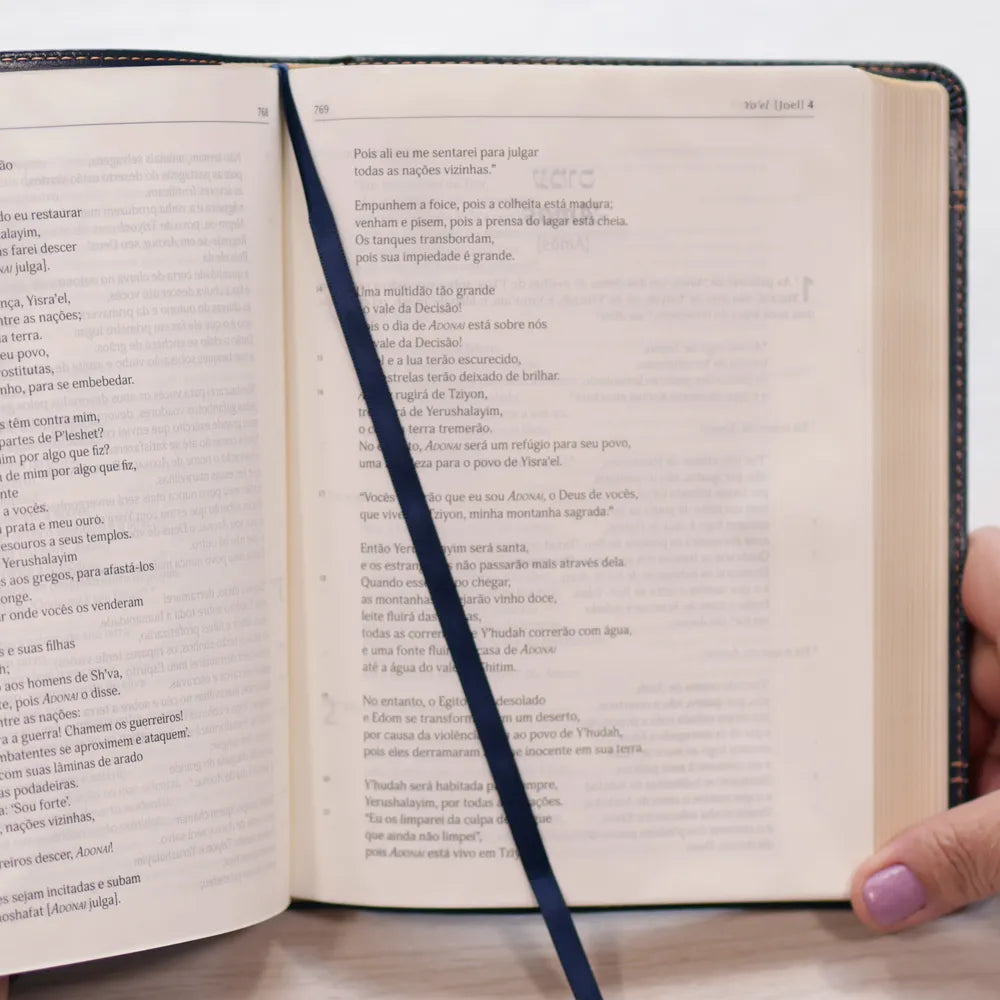 768
ão
do eu restaurar
alayim,
as farei descer
julga].
ença, Yisra'el,
ntre as nações;
a terra.
eu povo,
rostitutas,
nho, para se embebedar.
s têm contra mim,
partes de P'leshet?
im por algo que fiz?
de mim por algo que fiz,
nte
a vocês.
prata e meu ouro.
esouros a seus templos.
Yerushalayim
s aos gregos, para afastá-los
onge.
r onde vocês os venderam
s e suas filhas
h;
aos homens de Sh'va,
te, pois ADONAI o disse.
ntre as nações:
a a guerra! Chamem os guerreiros!
mbatentes se aproximem e ataquem'.
com suas lâminas de arado
as podadeiras.
a: 'Sou forte'.
, nações vizinhas,
reiros descer, ADONAI!
es sejam incitadas e subam
oshafat [ADONAI julga].
769
Yo'el [Joel] 4
Pois ali eu me sentarei para julgar
todas as nações vizinhas.”
Empunhem a foice, pois a colheita está madura;
venham e pisem, pois a prensa do lagar está cheia.
Os tanques transbordam,
pois sua impiedade é grande.
14 Uma multidão tão grande
o vale da Decisão!
is o dia de ADONAI está sobre nós
vale da Decisão!
15 l e a lua terão escurecido,
strelas terão deixado de brilhar.
16 rugirá de Tziyon,
rá de Yerushalayim,
o c terra tremerão.
No e to, ADONAI será um refúgio para seu povo,
uma eza para o povo de Yisra'el.
17 “Vocês rão que eu sou ADONAI, o Deus de vocês,
que vive Tziyon, minha montanha sagrada.”
Então Yeru yim será santa,
e os estran não passarão mais através dela.
18 Quando ess po chegar,
as montanha ejarão vinho doce,
leite fluirá das as,
todas as corren e Y'hudah correrão com água,
e uma fonte flui casa de ADONAI
até a água do vale Shitim.
19 No entanto, o Egito desolado
e Edom se transform m um deserto,
por causa da violênc ao povo de Y'hudah,
pois eles derramaram e inocente em sua terra.
20 Y'hudah será habitada p empre,
Yerushalayim, por todas a ações.
21 “Eu os limparei da culpa de ue
que ainda não limpei”,
pois ADONAI está vivo em Tziy